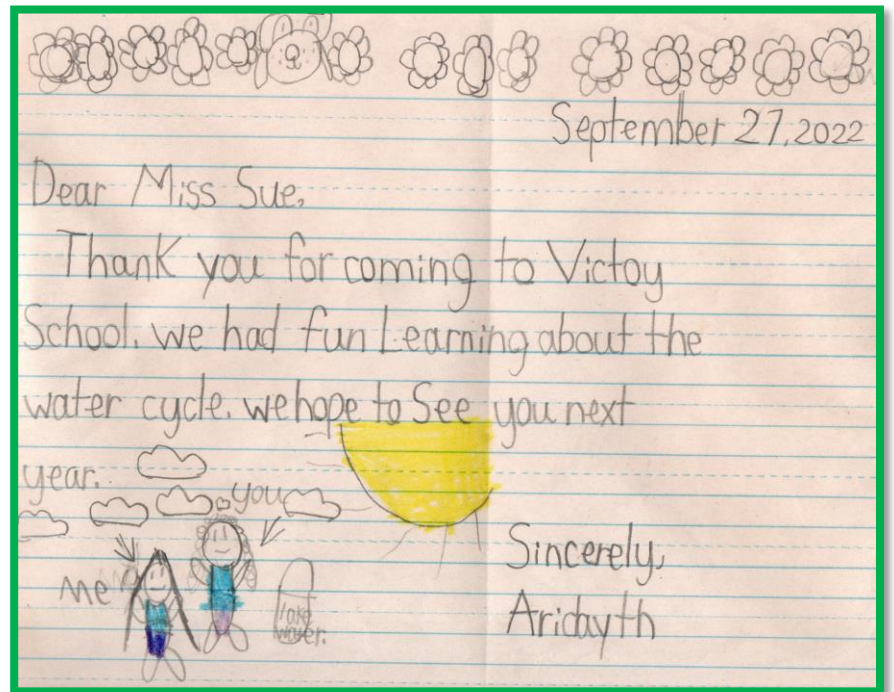 September 27, 2022
Dear Miss Sue,
Thank you for coming to Victoy
School. we had fun Learning about the
water cycle. we hope to See you next
year.
you
me
lake
water.
Sincerely,
Aridayth